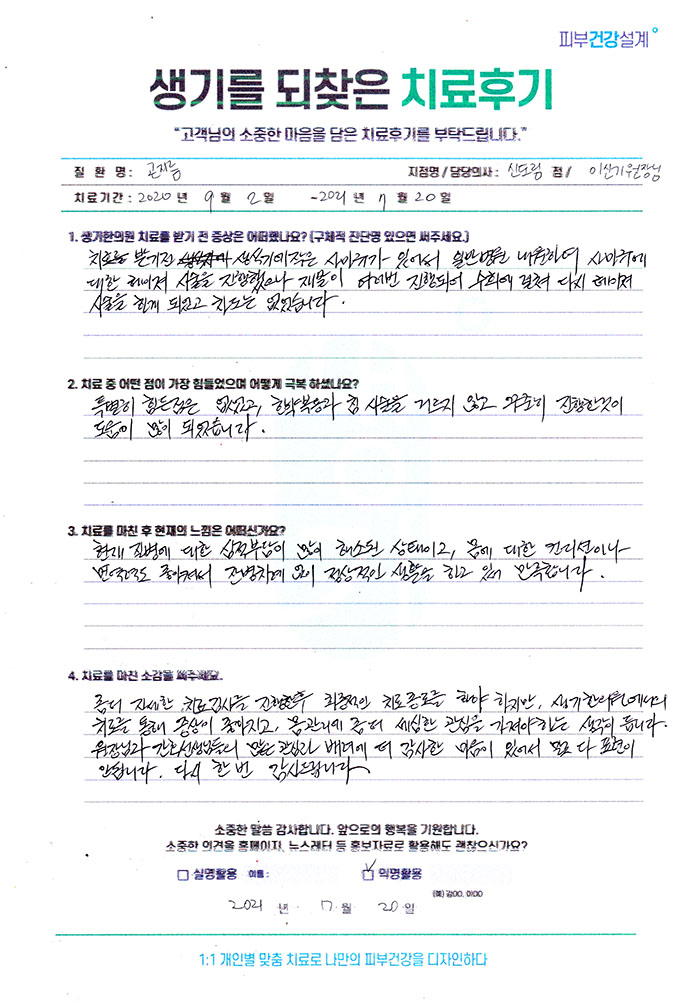 피부건강설계
생기를 되찾은 치료후기
"고객님의 소중한 마음을 담은 치료후기를 부탁드립니다."
질 환 명 : 곤지름 지점명 / 담당의사 : 신도림 점 / 이신기원장님
치료기간 : 2020 년 9 월 2 일 ~2021 년 7 월 20 일
1. 생기한의원 치료를 받기 전 증상은 어떠했나요? (구체적 진단명 있으면 써주세요.)
치료를 받기전 생식기에 작은 사마귀가 있어서 일반병원 내원하여 사마귀에
대한 레이저 시술을 진행했으나 재발이 여러번 진행되어 수회에 걸쳐 다시 레이저
시술을 하게 되었고 차도는 없었습니다.
2. 치료 중 어떤 점이 가장 힘들었으며 어떻게 극복 하셨나요?
특별히 힘든점은 없었고, 한약복용과 침 시술을 거르지 않고 꾸준히 진행한것이
도움이 많이 되었습니다.
3. 치료를 마친 후 현재의 느낌은 어떠신가요?
현재 질병에 대한 심적부담이 많이 해소된 상태이고, 몸에 대한 컨디션이나
면역력도 좋아져서 전병차레 없이 정상적인 생활을 하고 있어 만족합니다.
4. 치료를 마친 소감을 써주세요.
좀더 자세한 치료검사를 진행한후 최종적인 치료종료를 해야 하지만, 생기한의원에서의
치료를 통해 증상이 좋아지고, 몸관리에 좀더 세심한 관심을 가져야하는 생각이 듭니다.
원장님과 간호선생님들의 많은 관심과 배려에 더 감사한 마음이 있어서 말로 다 표현이
안됩니다. 다시 한 번 감사드립니다
소중한 말씀 감사합니다. 앞으로의 행복을 기원합니다.
소중한 의견을 홈페이지, 뉴스레터 등 홍보자료로 활용해도 괜찮으신가요?
실명활용 이름 : 익명활용
(예) 김OO, 이OO
2021 년 7 월 20 일
1:1 개인별 맞춤 치료로 나만의 피부건강을 디자인하다